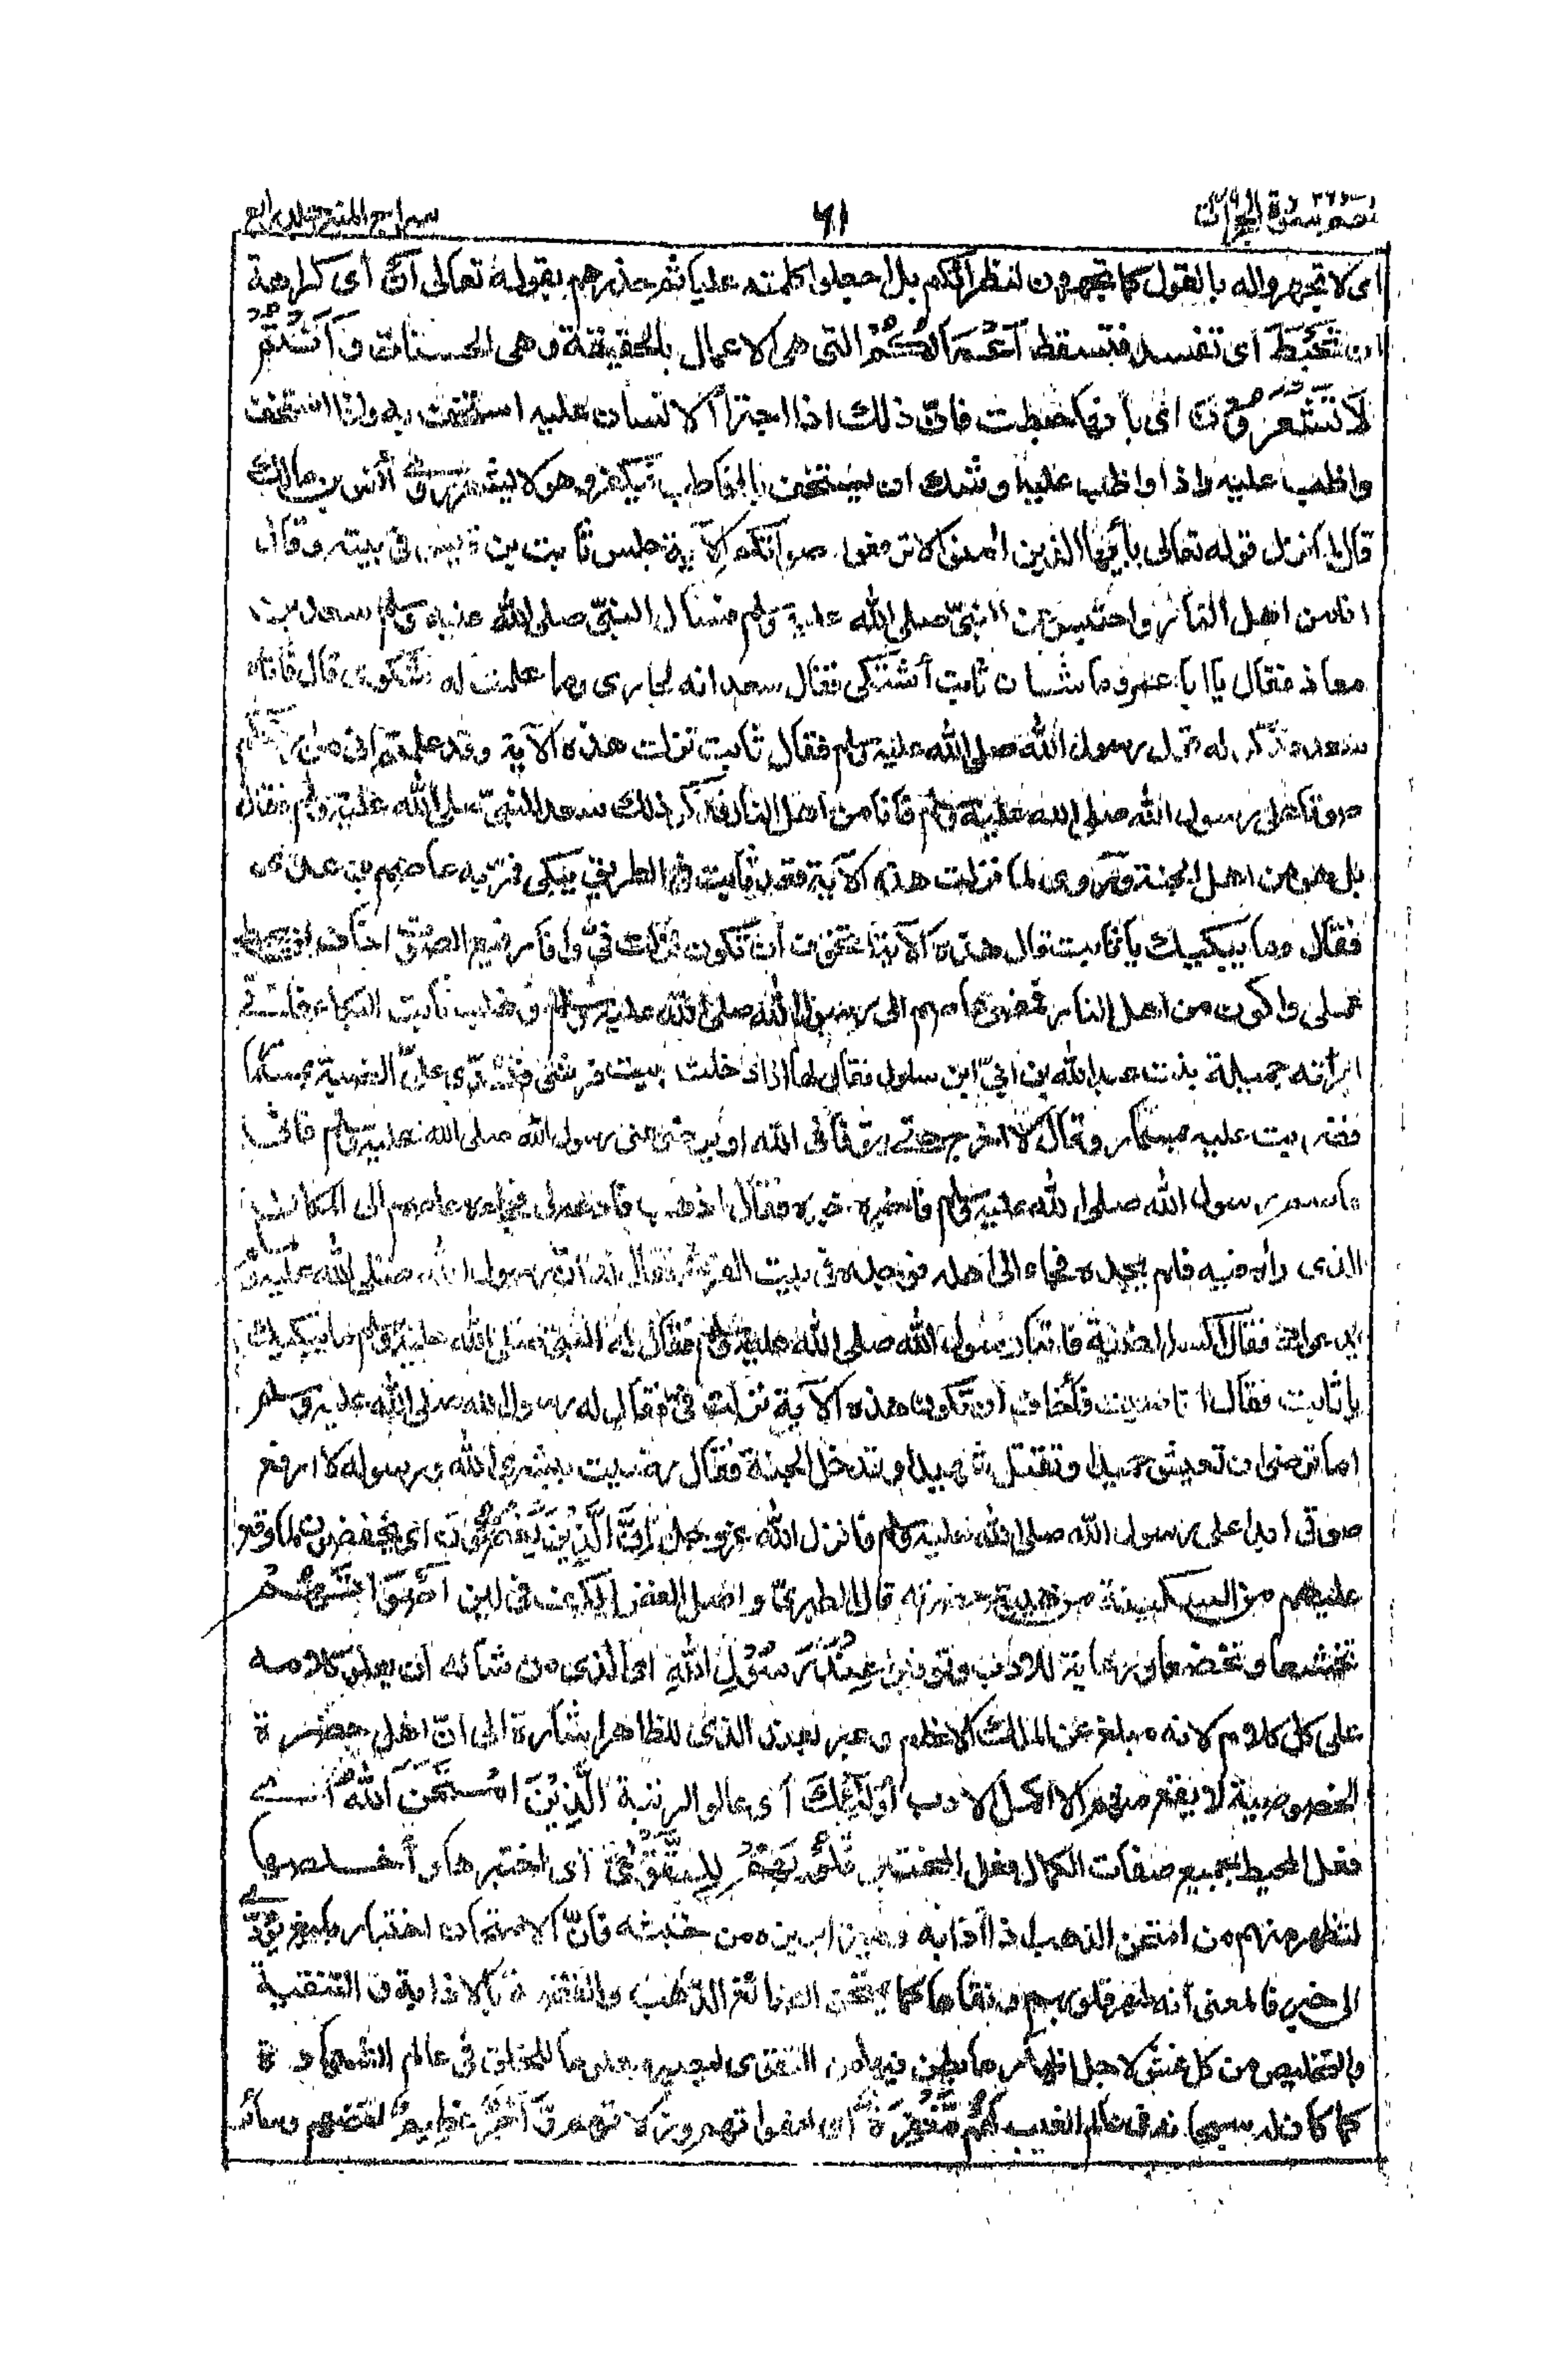 حم ٢٦ سورة الحجرات ٦١ سراج المنير جلد رابع
اى لا تجهروا له بالقول كما تجهرون لنظرائكم بل اجعلوا كلمته عليا ثم حذرهم بقوله تعالى أن أى كراهة
ان تَحْبَطَ أى تفسد فتسقط أَعْمَالُكُمْ التى هى الاعمال بالحقيقة وهى الحسنات وَأَنْتُمْ
لَا تَشْعُرُونَ أى بأنها حبطت فانّ ذلك اذا اجترأ الانسان عليه استخف به واذا استخف
واظب عليه واذا واظب عليه اوشك ان يستخف بالمخاطب فيكفر وهو لا يشعر روى أنس بن مالك
قال لما نزل قوله تعالى يا أيها الذين اٰمنوا لا ترفعوا صواتكم الآية جلس ثابت بن قيس فى بيته وقال
انا من اهل النار واحتبس عن النبىّ صلى الله عليه وسلم فسأل النبىّ صلى الله عليه وسلم سعد بن
معاذ فقال يا ابا عمرو ما شان ثابت أشتكى فقال سعد انه لجارى وما علمت له شكوى قال فاتاه
سعد فذكر له قول رسول الله صلى الله عليه وسلم فقال ثابت نزلت هذه الآية وقد علمتم انى من
صوتا على رسول الله صلى الله عليه وسلم فانا من اهل النار فذكر ذلك سعد للنبىّ صلى الله عليه وسلم فقال
بل هو من اهل الجنة وروى لما نزلت هذه الآية قعد ثابت فى الطريق يبكى فمرّ به عاصم بن عدى
فقال وما يبكيك يا ثابت قال هذه الآية اتخوف أن تكون نزلت فىّ وانا رفيع الصوت اخاف ان يحبط
عملى واكون من اهل النار فمضى عاصم الى رسول الله صلى الله عليه وسلم وغلب ثابت البكاء فاتى
امرأته جميلة بنت عبد الله بن ابىّ ابن سلول فقال لها اذا دخلت بيت فرشى فشدّى علىّ الضبة بمسمار
فضربت عليه بمسمار وقال لا اخرج حتى يتوفانى الله او يرضى عنى رسول الله صلى الله عليه وسلم فاتى
عاصم رسول الله صلى الله عليه وسلم فاخبره خبره فقال اذهب فادعه لى فجاء عاصم الى المكان
الذى رأه فيه فلم يجده فجاء الى اهله فوجده فى بيت الفرش فقال له انّ رسول الله صلى الله عليه وسلم
يدعوك فقال اكسر الضبة فاتيا رسول الله صلى الله عليه وسلم فقال له النبىّ صلى الله عليه وسلم ما يبكيك
يا ثابت فقال انا صيت فأخاف أن تكون هذه الآية نزلت فىّ فقال له رسول الله صلى الله عليه وسلم
اما ترضى ان تعيش حميدا وتقتل شهيدا وتدخل الجنة فقال رضيت ببشرى الله ورسوله لا ارفع
صوتى ابدا على رسول الله صلى الله عليه وسلم فانزل الله عزوجل إِنَّ الَّذِيْنَ يَغُضُّوْنَ اى يخفضون لما وقر
عليهم من السكينة من هيبة حضرته قال الطبرىّ واصل الغض الكف فى لين أَصْوَاتَهُمْ
تخشعا وتخضعا ورعاية للادب وتوقيرا عِنْدَ رَسُوْلِ اللّٰهِ اى الذى من شانه ان يعلو كلامه
على كل كلام لانه مبلغ عن الملك الاعظم وعبر بعند الذى للظاهر اشارة الى انّ اهل حضرة
الخصوصية لا يقع منهم الا اكمل الادب أُولٰٓئِكَ أى عالو الرتبة الَّذِيْنَ امْتَحَنَ اللّٰهُ أى
فعل المحيط بجميع صفات الكمال فعل المختبر قُلُوْبَهُمْ لِلتَّقْوٰى أى اختبرها وأخلصها
لتظهر منهم من امتحن الذهب اذا اذابه وميز ابريزه من خبثه فانّ الامتحان اختبار بليغ يؤدّى
الى خبر فالمعنى أنه طهر قلوبهم ونقاها كما يمتحن الصائغ الذهب والفضة بالاذابة والتنقية
والتخليص من كل غش لاجل اظهار ما بطن فيها من التقوى ليصير معلوما للخلق فى عالم الشهادة
كما كان له سبحانه فى عالم الغيب لَهُمْ مَغْفِرَةٌ أى لهفواتهم وزلاتهم وَّأَجْرٌ عَظِيْمٌ لغضهم وسائر